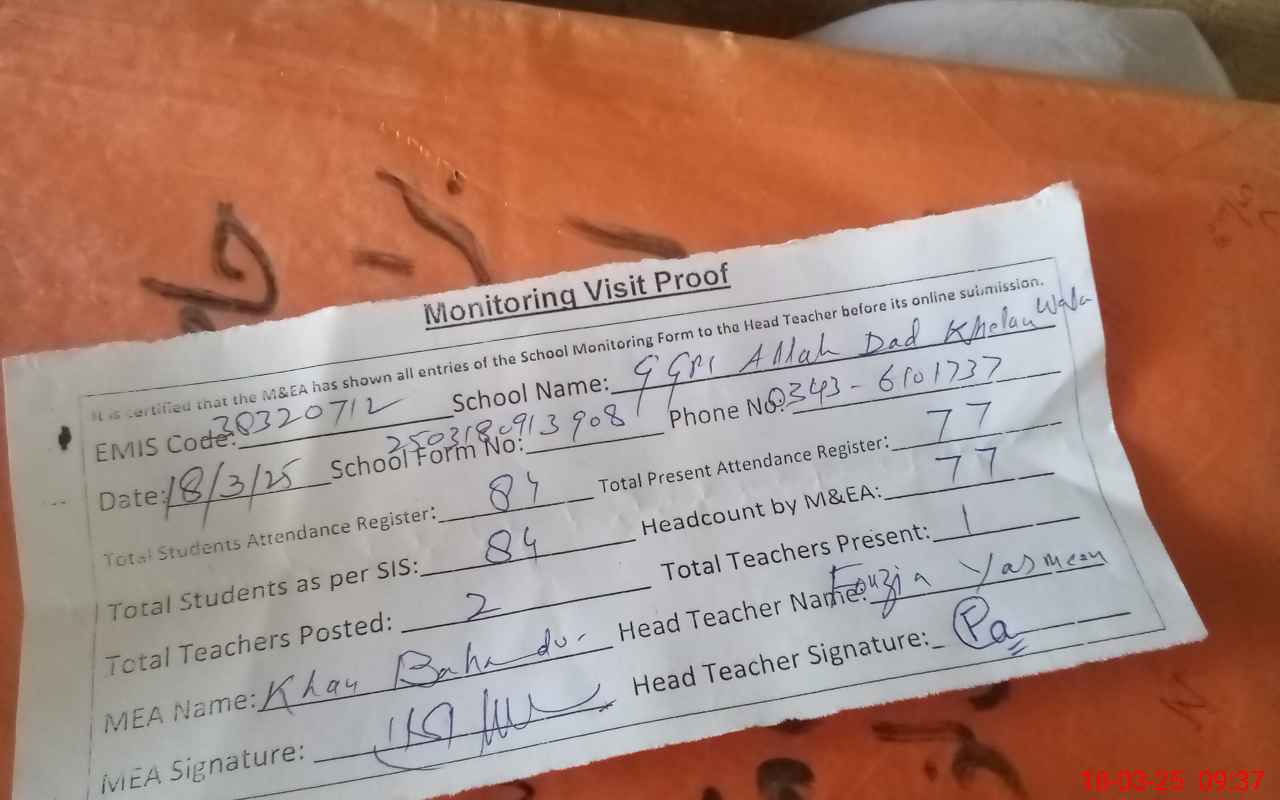 Monitoring Visit Proof
It is certified that the M&EA has shown all entries of the School Monitoring Form to the Head Teacher before its online submission.
EMIS Code: 38320712 School Name: GGPS Allah Dad Khelan Wala
Date: 18/3/25 School Form No: 2503180913908 Phone No: 0343-6101737
Total Students Attendance Register: 84 Total Present Attendance Register: 77
Total Students as per SIS: 84 Headcount by M&EA: 77
Total Teachers Posted: 2 Total Teachers Present: 1
MEA Name: Khan Bahadur Head Teacher Name: Fouzia Yasmeen
MEA Signature: Head Teacher Signature: Pa
18-03-25 09:37